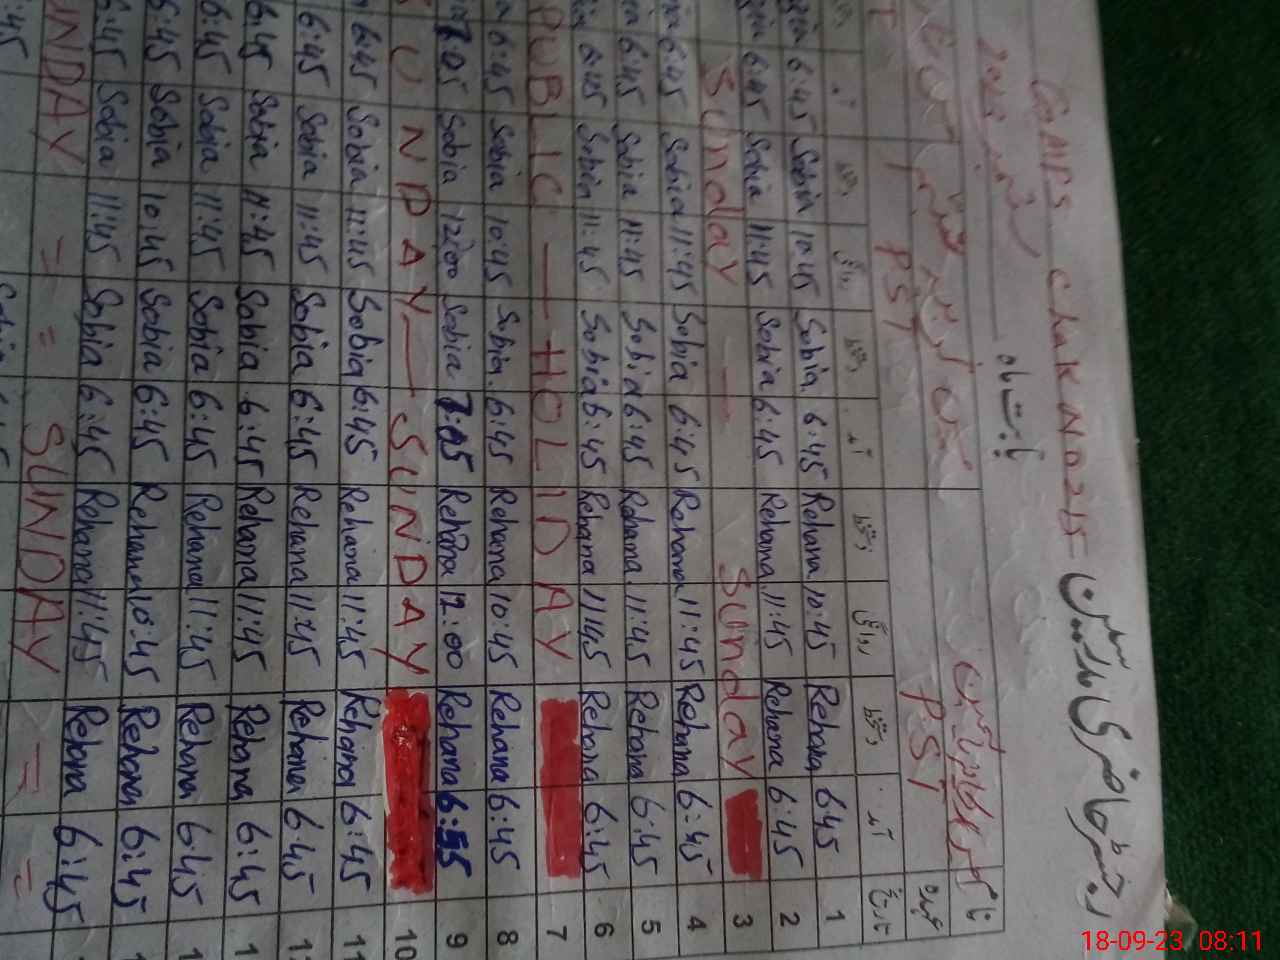 GMPS chak No 215 رجسٹر حاضری مدرسین
بابت ماہ ستمبر 2023
نام
PST PST عہدہ
دستخط روانگی دستخط آمد دستخط روانگی دستخط آمد تاریخ
6:45 Sobia 10:45 Sobia 6:45 Rehana 10:45 Rehana 6:45 1
6:45 Sobia 11:45 Sobia 6:45 Rehana 11:45 Rehana 6:45 2
Sunday — Sunday 3
6:45 Sobia 11:45 Sobia 6:45 Rehana 11:45 Rehana 6:45 4
6:45 Sobia 11:45 Sobia 6:45 Rehana 11:45 Rehana 6:45 5
6:45 Sobia 11:45 Sobia 6:45 Rehana 11:45 Rehana 6:45 6
PUBLIC — HOLIDAY 7
6:45 Sobia 10:45 Sobia 6:45 Rehana 10:45 Rehana 6:45 8
7:05 Sobia 12:00 Sobia 7:05 Rehana 12:00 Rehana 6:55 9
SUNDAY — SUNDAY 10
6:45 Sobia 11:45 Sobia 6:45 Rehana 11:45 Rehana 6:45 11
6:45 Sobia 11:45 Sobia 6:45 Rehana 11:45 Rehana 6:45
6:45 Sobia 11:45 Sobia 6:45 Rehana 11:45 Rehana 6:45
6:45 Sobia 11:45 Sobia 6:45 Rehana 11:45 Rehana 6:45
6:45 Sobia 10:45 Sobia 6:45 Rehana 10:45 Rehana 6:45
6:45 Sobia 11:45 Sobia 6:45 Rehana 11:45 Rehana 6:45
SUNDAY = = SUNDAY = =
18-09-23 08:11